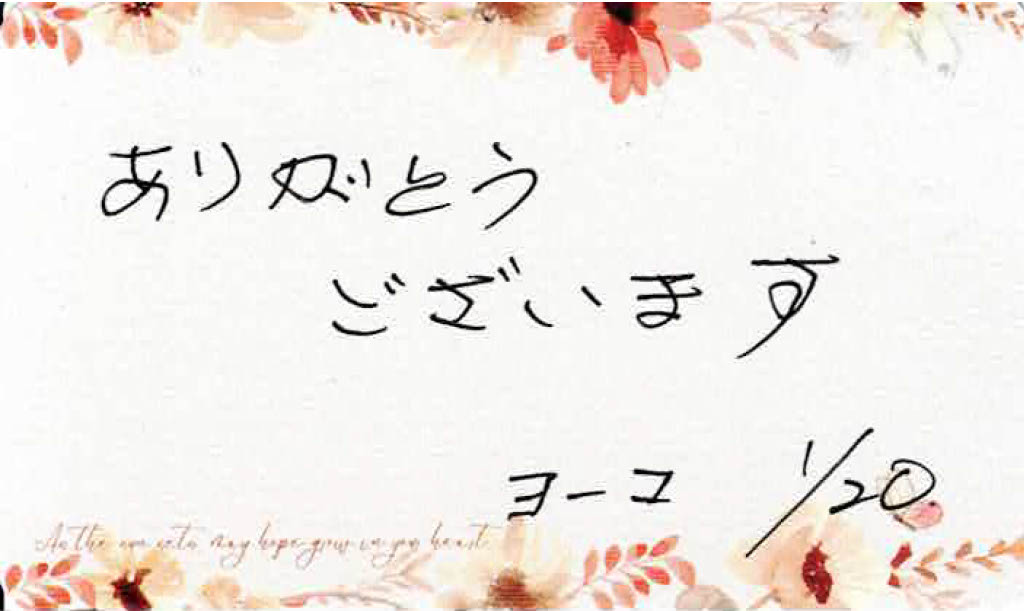 ありがとう
ございます
ヨーコ 1/20
As the sun sets may hope grow in you heart